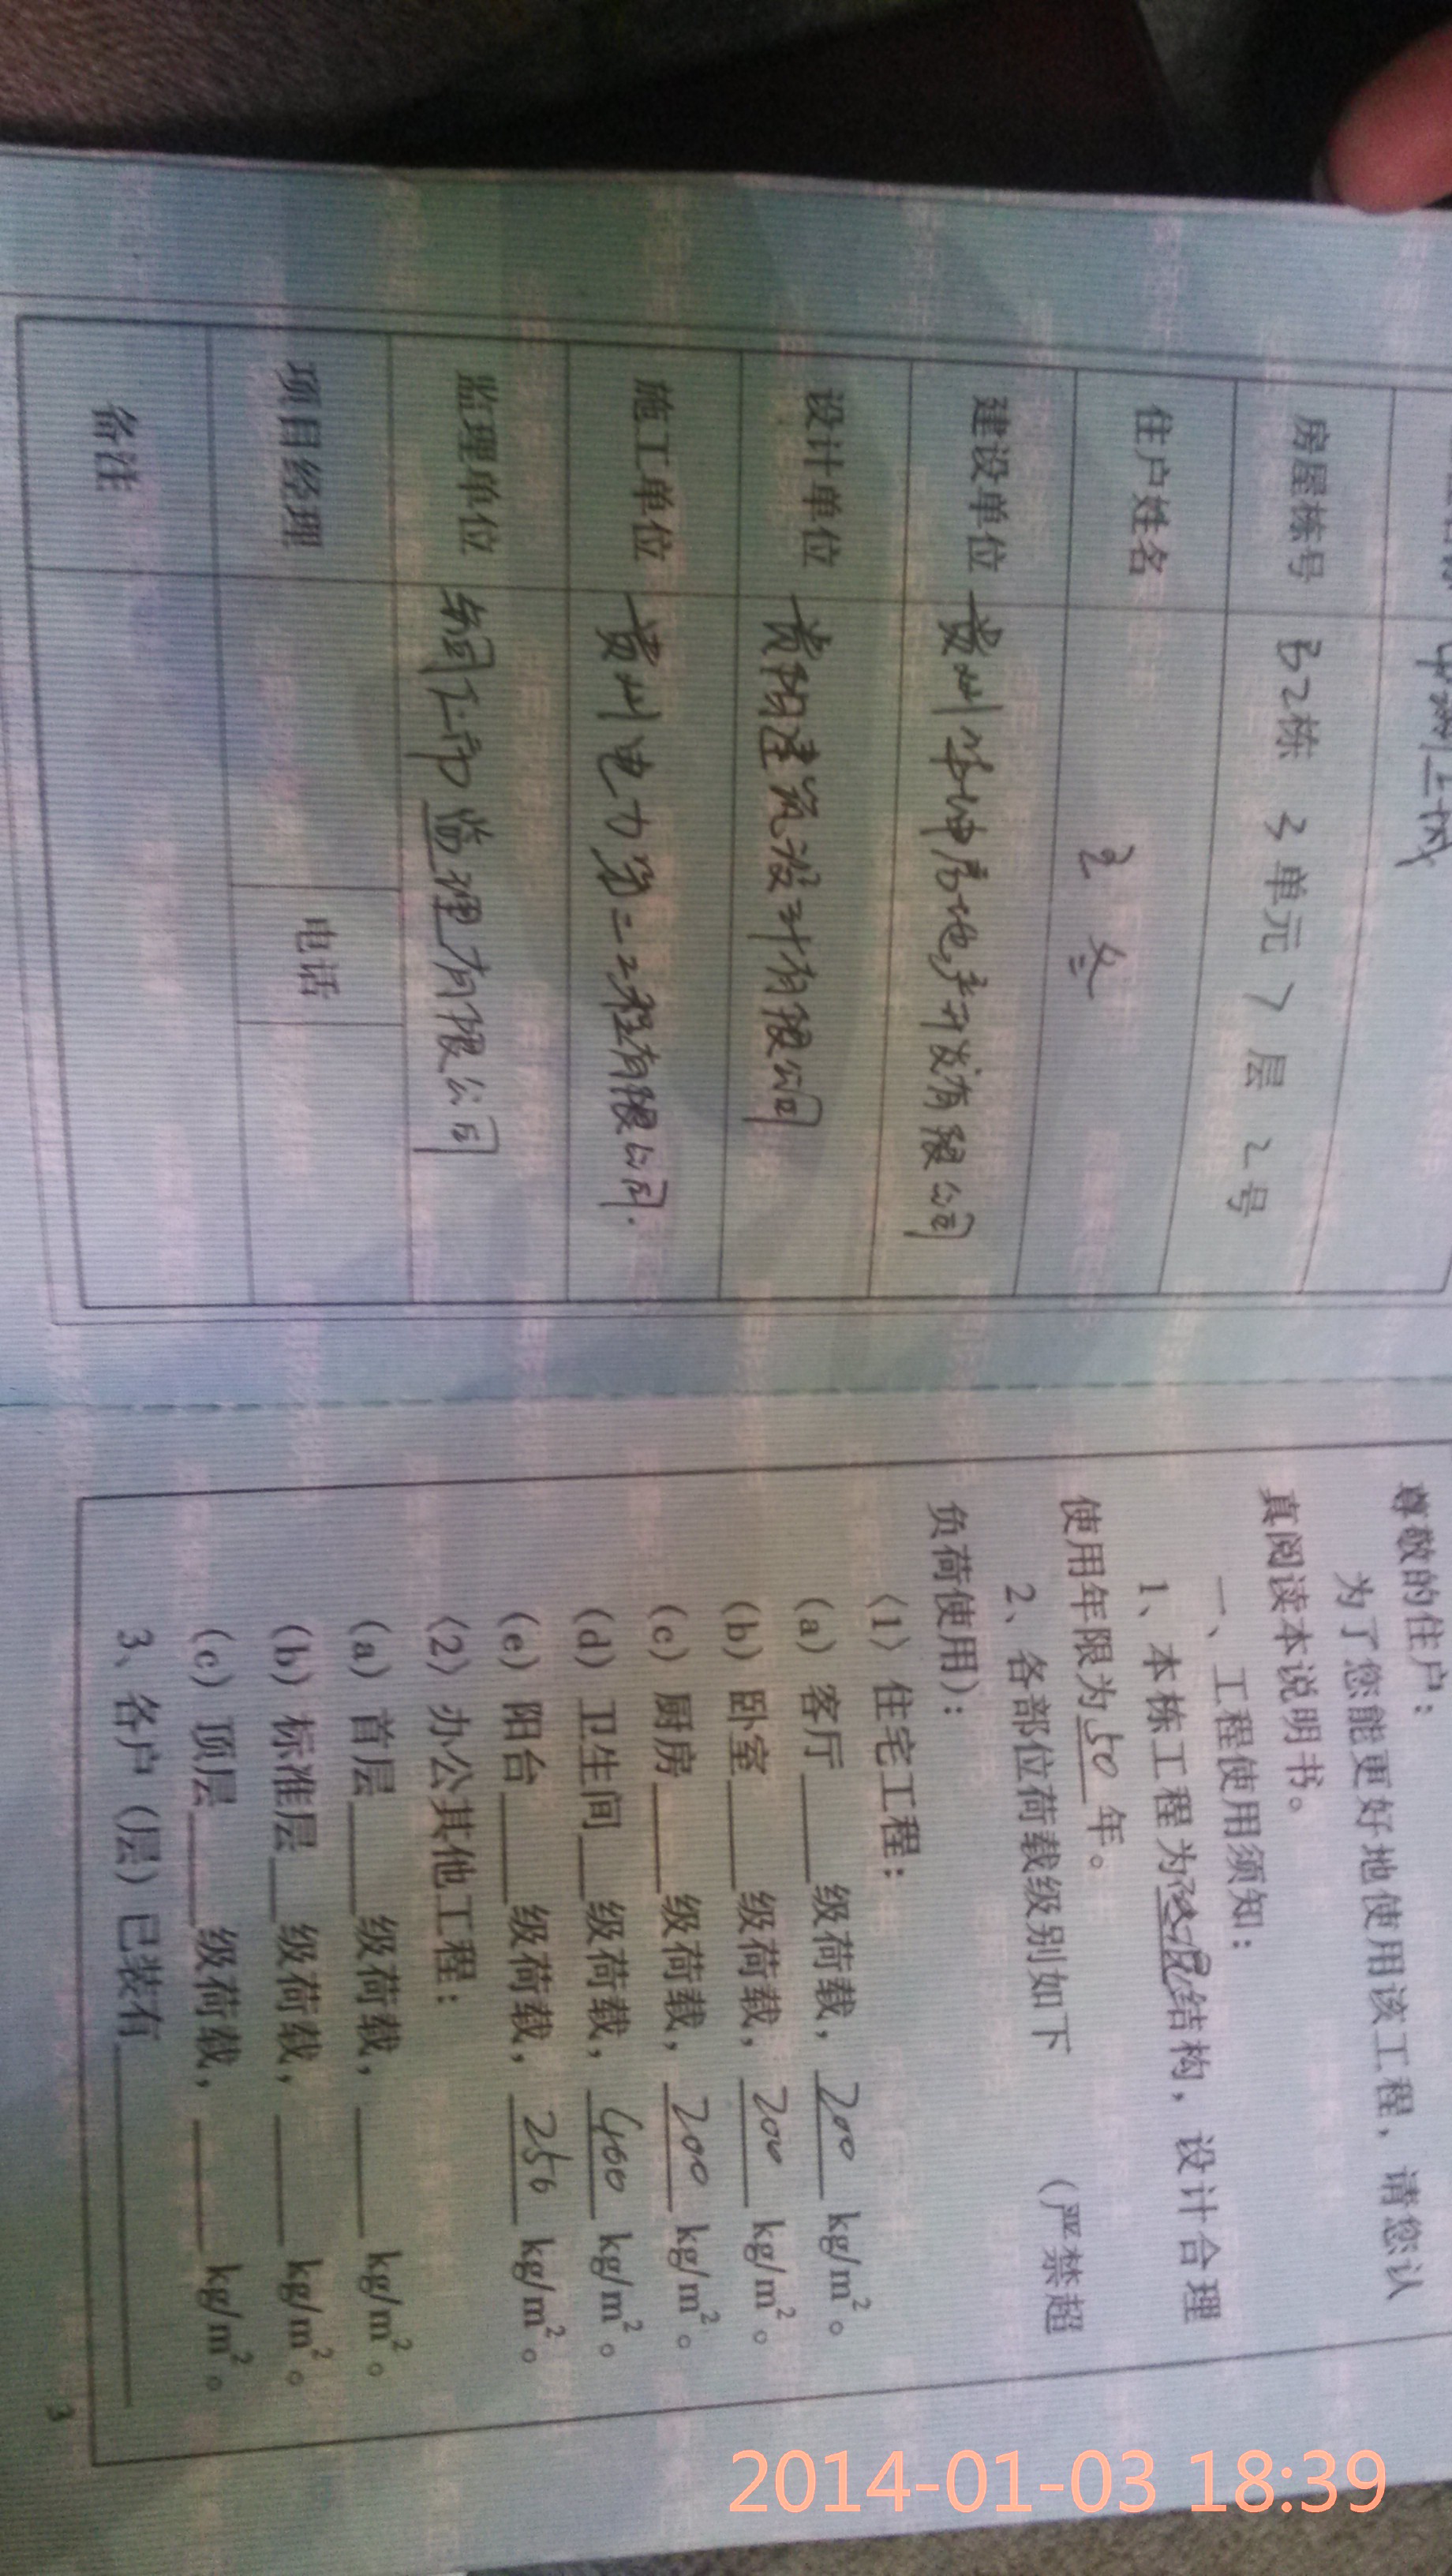 房屋栋号 B2栋 3 单元 7 层 2 号
住户姓名 冬
建设单位 贵州 房地产开发有限公司
设计单位 贵阳建筑设计有限公司
施工单位 贵州电力第二工程有限公司.
监理单位 监理有限公司
项目经理 电话
备注
尊敬的住户：
为了您能更好地使用该工程，请您认
真阅读本说明书。
一、工程使用须知：
1、本栋工程为 结构，设计合理
使用年限为50年。
2、各部位荷载级别如下 （严禁超
负荷使用）：
〈1〉住宅工程：
(a) 客厅____级荷载，200 kg/m²。
(b) 卧室____级荷载，200 kg/m²。
(c) 厨房____级荷载，200 kg/m²。
(d) 卫生间__级荷载，400 kg/m²。
(e) 阳台____级荷载，250 kg/m²。
〈2〉办公其他工程：
(a) 首层____级荷载，____ kg/m²。
(b) 标准层__级荷载，____ kg/m²。
(c) 顶层____级荷载，____ kg/m²。
3、各户（层）已装有____________
3
2014-01-03 18:39